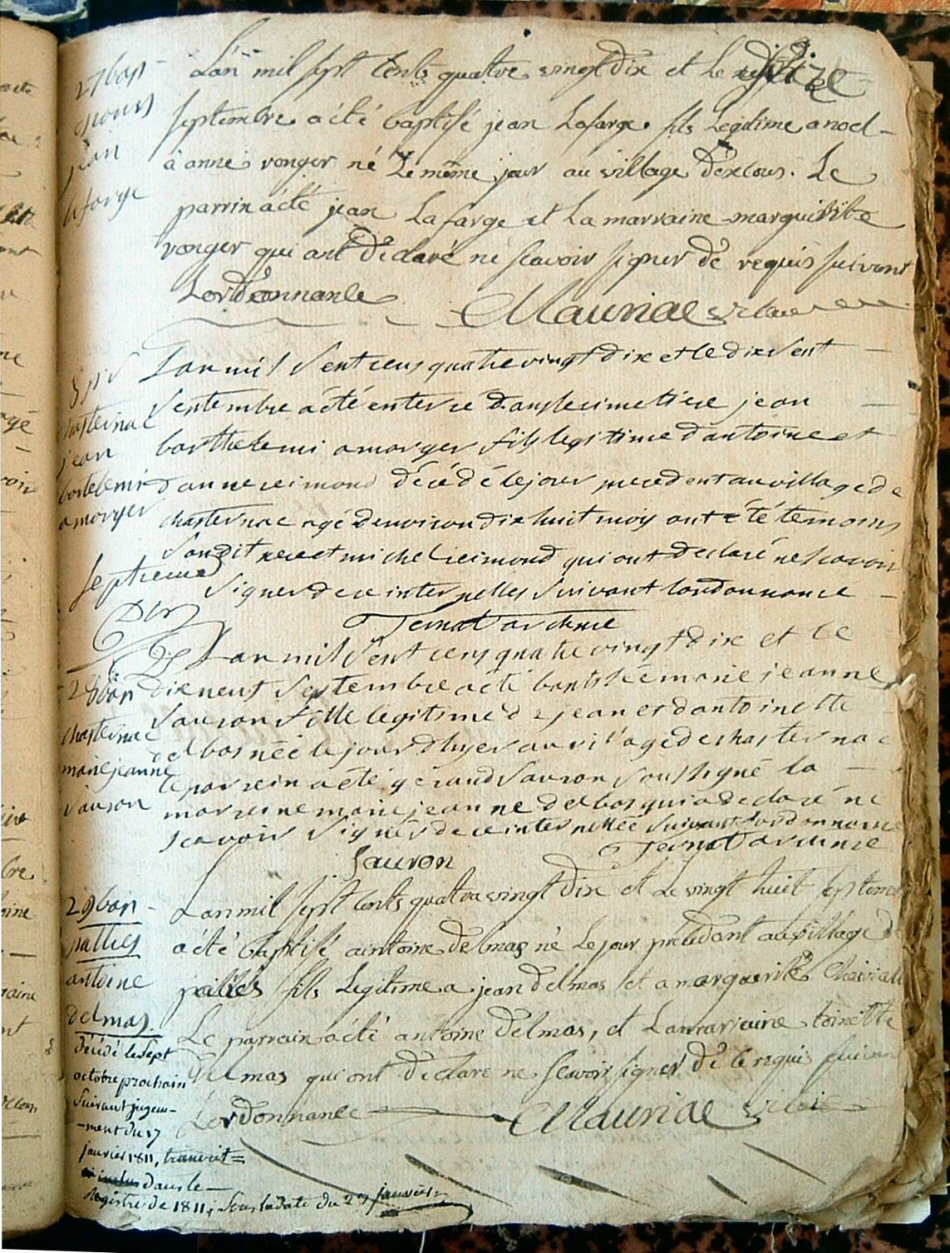 27 bap
jean
lafarge
L'an mil sept cents quatre vingt dix et le
septembre a été baptisé jean Lafarge fils Legitime a noel
a anne vonger né Le même jour au village d'exclous. Le
parrin a été jean Lafarge et La marraine marguiritte
vonger qui ont déclaré ne scavoir signer dé requis suivant
L'ordonnance Mauriac vicaire
chasternac
jean
bartelemi
amorger
Septième
L'an mil sept cens quatre vingt dix et le dix sept
septembre a été enterre dans le cimetière jean
barthelemi amorger fils legitime d'antoine et
d'anne reimond décédé le jour precedent au village de
chasternac agé d'environ dix huit moy ont été temoins
sondit pere et michel reimond qui ont declaré ne scavoir
signer de ce interpellés suivant lordonnance
28 bap
chasternac
marie jeanne
sauron
L'an mil sept cens quatre vingt dix et le
dix neuf septembre a été baptisée marie jeanne
sauron fille legitime de jean et d'antoinette
delbos née le jour d'hyer au village de chasternac
le parrein a été gérand sauron soussigné la
marreine marie jeanne delbos qui a declaré ne
scavoir signer de ce interpellée suivant lordonnance
Sauron
29 bap
pallies
antoine
delmas
Décédé le sept
octobre prochain
Suivant juge-
-ment du 17
janvier 1811, transcrit
dans le
Registre de 1811, sous la date du 29 janvier
L'an mil sept cents quatre vingt dix et Le vingt huit septembre
a été baptisé antoine delmas né Le jour précédant au village de
pallies fils Legitime a jean delmas et a marguerite
Le parrain a été antoine delmas, et La marraine toinette
delmas qui ont déclaré ne scavoir signer de ce requis suivant
L'ordonnance Mauriac vicaire